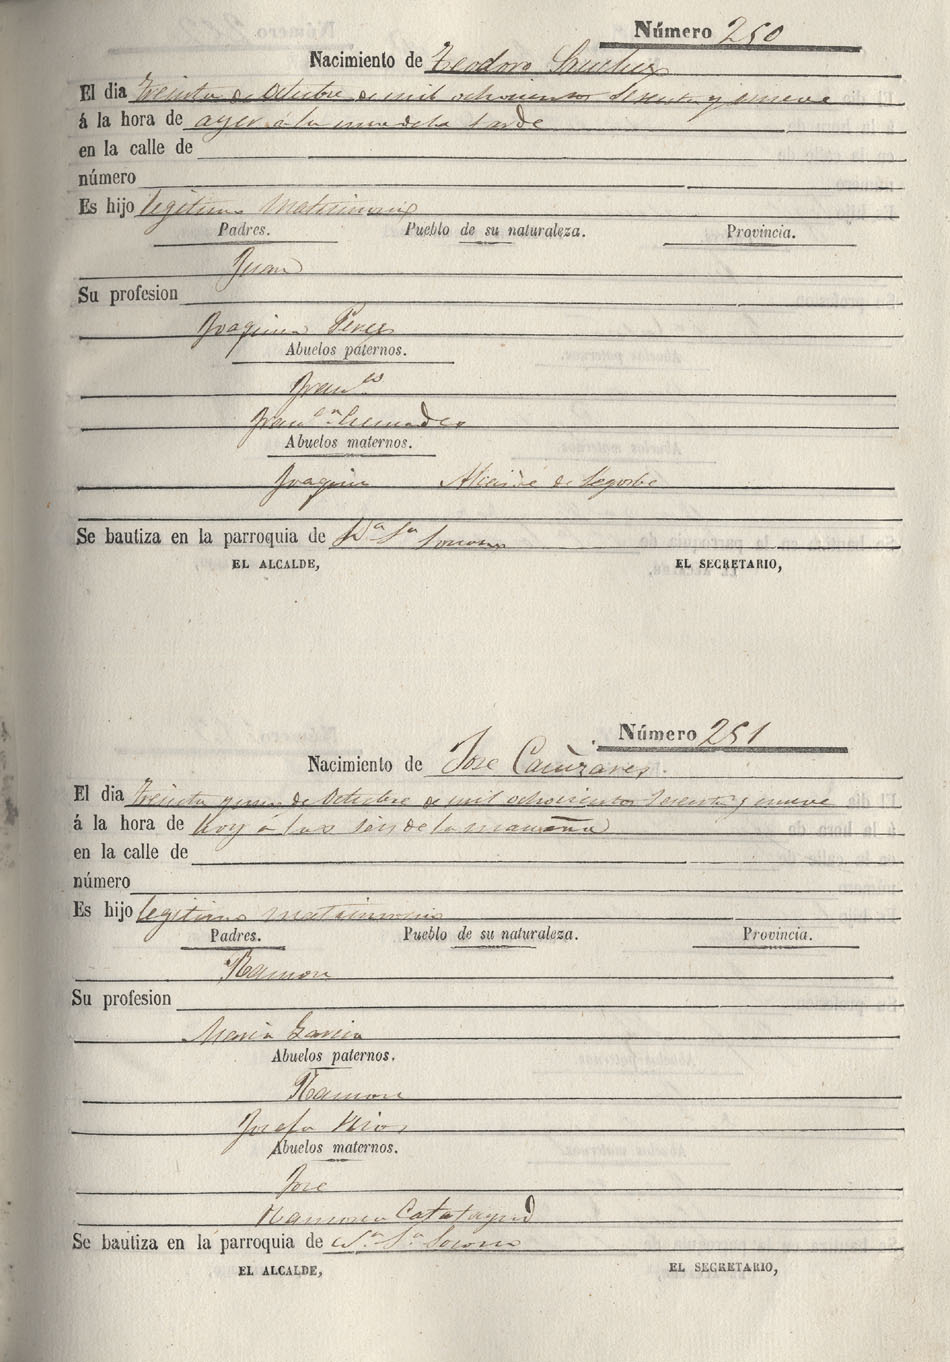 Número 250
Nacimiento de Teodoro Sanchez
El dia Treinta de Octubre de mil ochocientos sesenta y nueve
á la hora de ayer á la una de la tarde
en la calle de
número
Es hijo legitimo Matrimonio
Padres. Pueblo de su naturaleza. Provincia.
Juan
Su profesion
Joaquina Perez
Abuelos paternos.
Fran.co
Fran.ca
Abuelos maternos.
Joaquin de Segorbe
Se bautiza en la parroquia de N.a S.a Socorro
EL ALCALDE, EL SECRETARIO,
Número 251
Nacimiento de Jose Cañizares
El dia Treinta y uno de Octubre de mil ochocientos sesenta y nueve
á la hora de hoy á las seis de la mañana
en la calle de
número
Es hijo legitimo matrimonio
Padres. Pueblo de su naturaleza. Provincia.
Ramon
Su profesion
Maria Garcia
Abuelos paternos.
Ramon
Josefa Rios
Abuelos maternos.
Jose
Ramona Calatayud
Se bautiza en la parroquia de N.a S.a Socorro
EL ALCALDE, EL SECRETARIO,